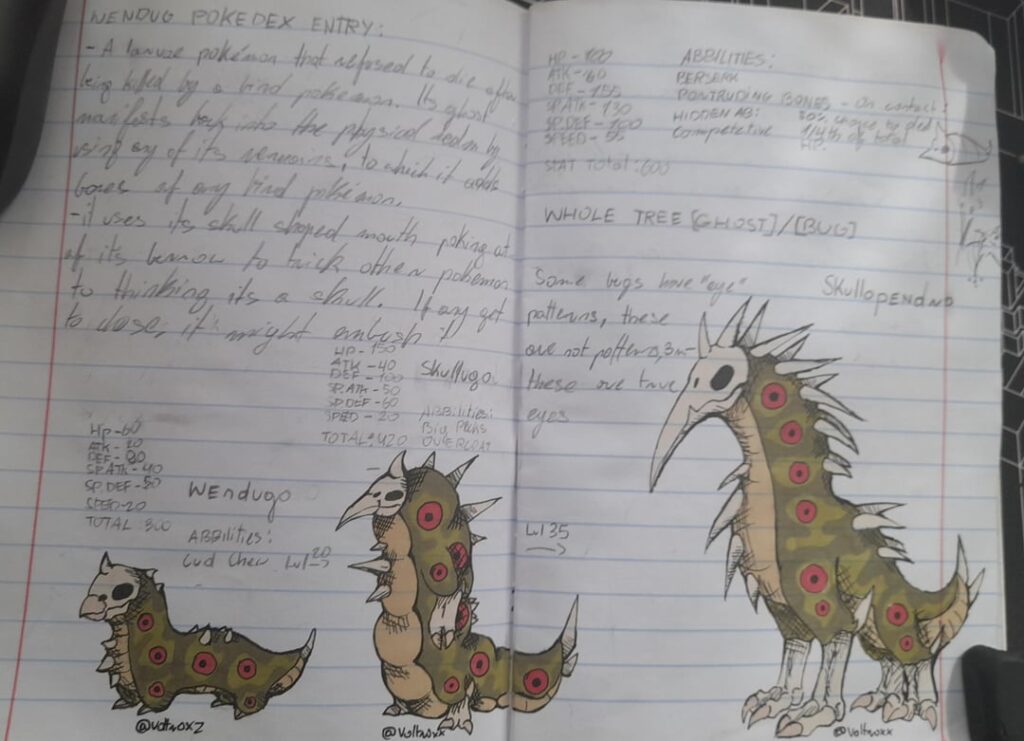 WENDUG POKEDEX ENTRY:
- A larvae pokémon that refused to die after
being killed by a bird pokemon. Its ghost
manifists back into the physical by
using any of its remains, to which it adds
bones of any bird pokémon.
- it uses its skull shaped mouth poking at
of its burrow to trick other pokemon
to thinking its a skull. If any get
to close, it might ambush!
HP - 150
ATK - 40
DEF - 100
SP.ATK - 50
SP.DEF - 60
SPED - 20
TOTAL: 420
Skullugo
ABBILITIES:
Big Pecks
OVERCOAT
HP - 60
DEF - 80
SP.ATK - 40
SP.DEF - 50
SPED - 20
TOTAL: 300
WENDUGO
ABBILITIES:
Cud Chew
Lvl 20
@Voltwoxz
@Voltwoxx
HP - 100
ATK - 60
DEF - 155
SP.ATK - 130
SP.DEF - 100
SPEED - 55
STAT Total: 600
ABBILITIES:
BERSERK
PONTRUDING BONES - On contact:
30% chance to bleed
1/4th of total
HP.
HIDDEN AB:
Competetive
WHOLE TREE [GHOST]/[BUG]
SKULLOPENDND
Some bugs have "eye"
patterns, these
are not patterns,
these are true
eyes
3m-
Lvl 35
@Voltwoxx